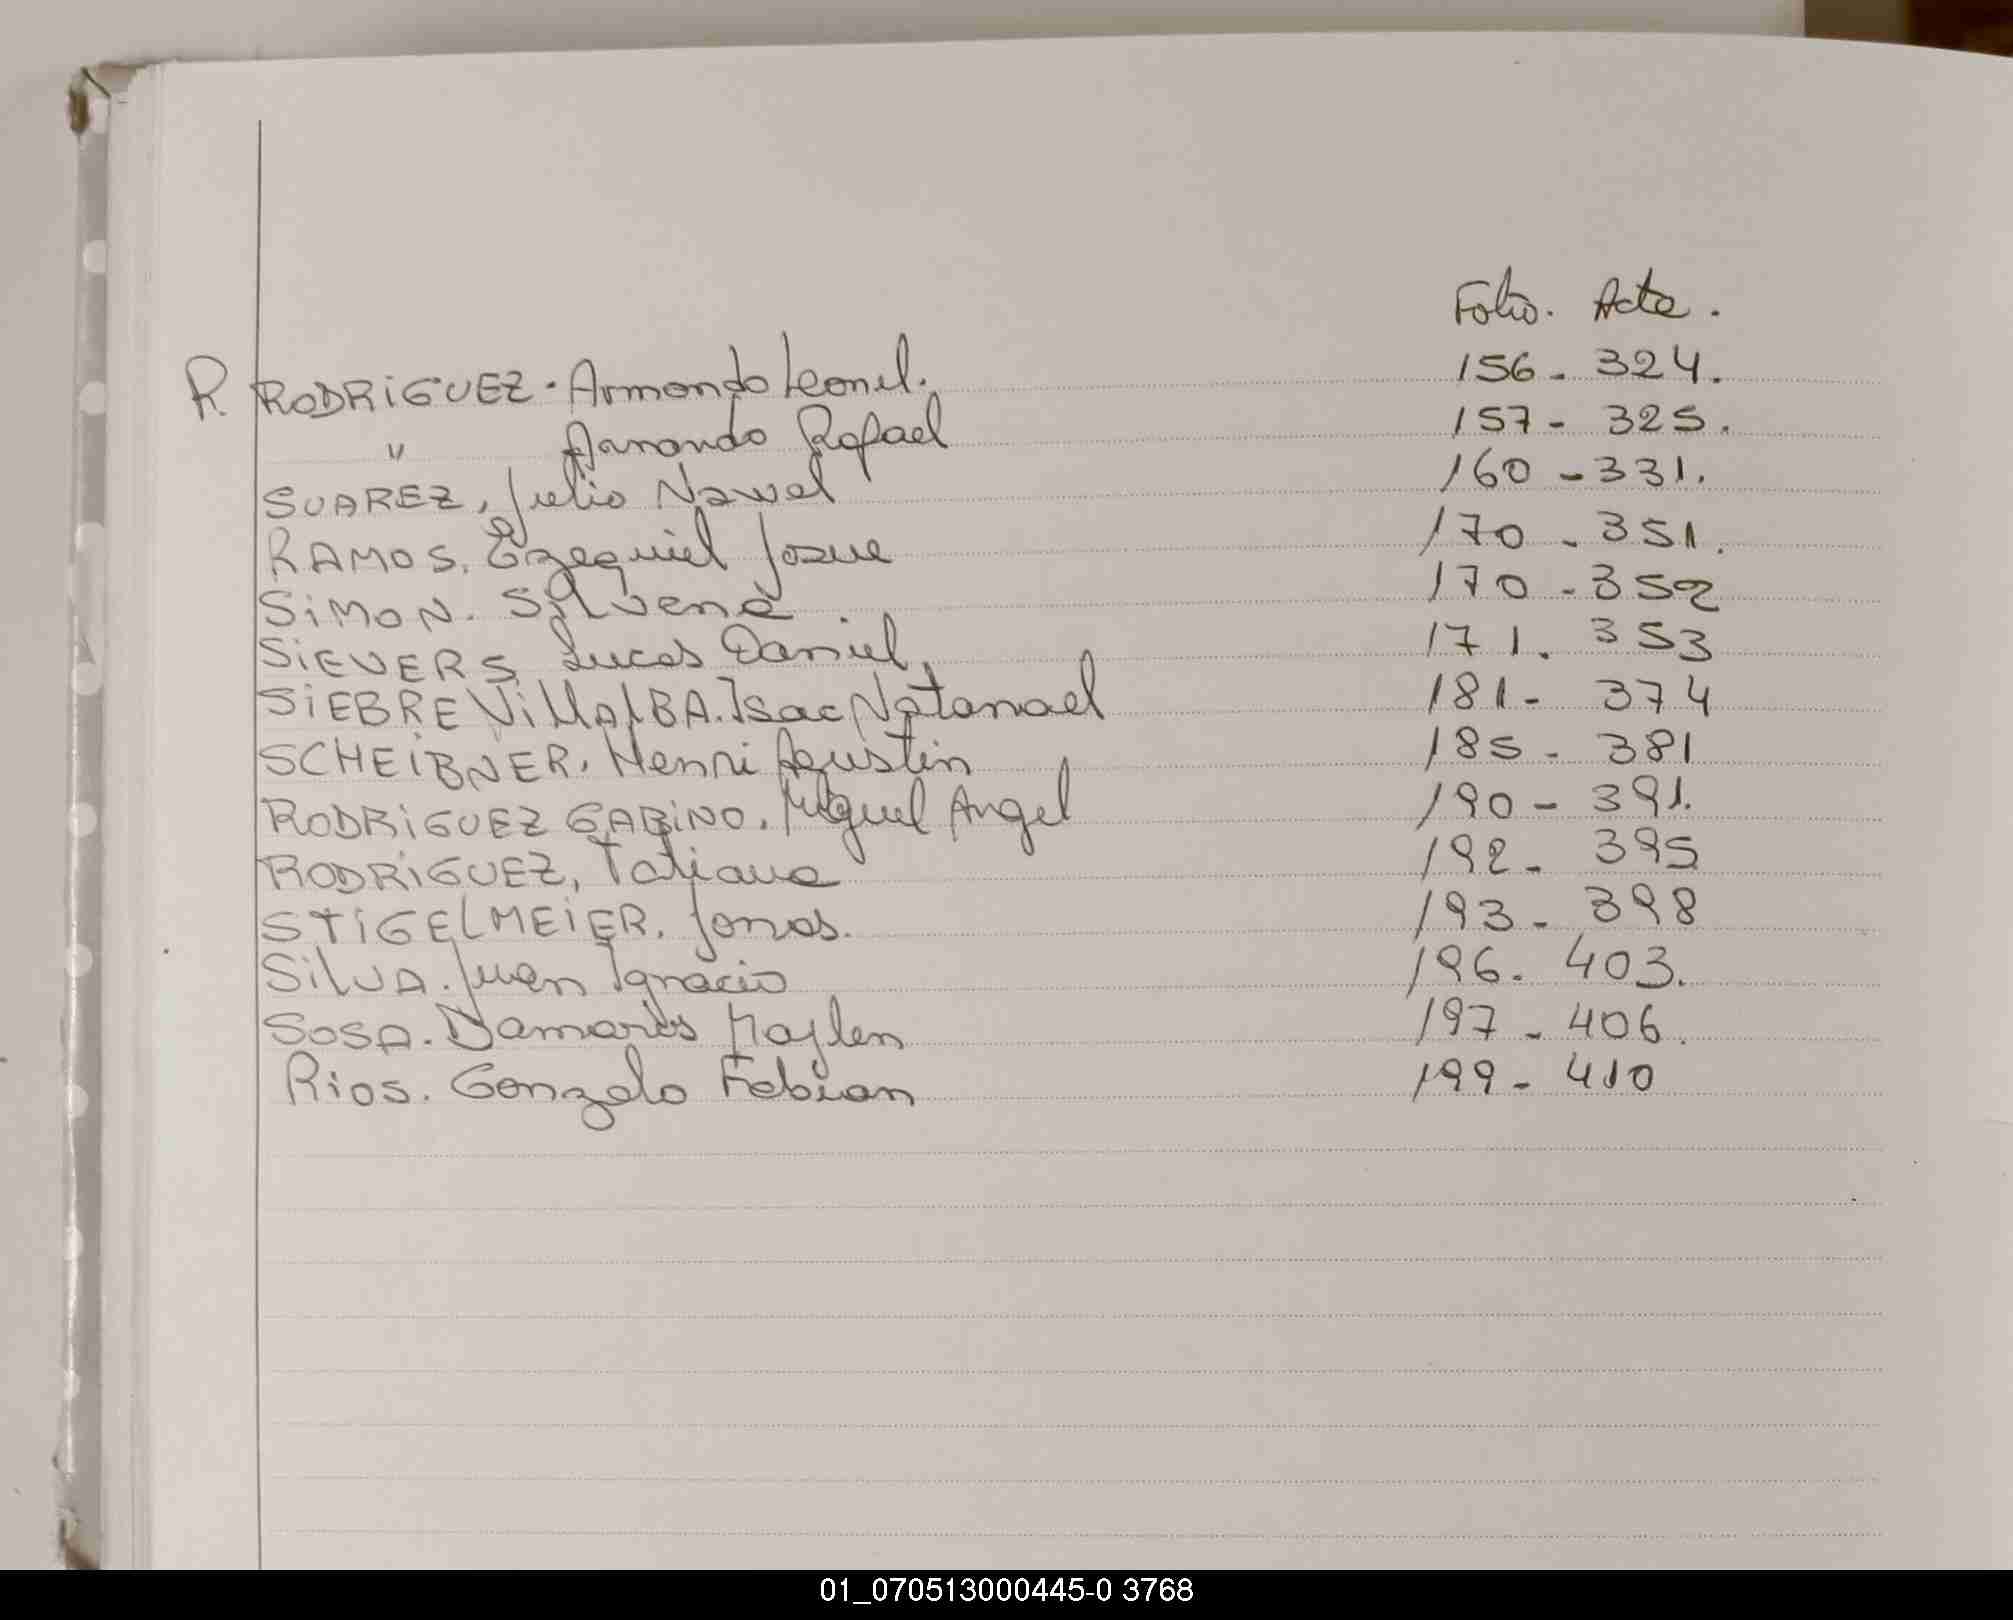 Folio. Acta.
R. RODRiGUEZ. Armando Leonel. 156. 324.
" Armando Rafael 157- 325.
SUAREZ, Julio Nawel 160 - 331.
RAMOS. Ezequiel Josue 170 - 351.
SiMON. Silvana 170 - 352
SiEVERS Lucas Daniel, 171. 353
SiEBRE ViLLALBA. Isac Natanael 181- 374
SCHEiBNER. Henri Agustin 185- 381
RODRiGUEZ GABiNO. Miguel Angel 190 - 391.
RODRiGUEZ, Tatiana 192- 395
STiGELMEiER. Jonas. 193- 398
SiLVA. Juan Ignacio 196. 403.
SOSA. Damaris Maylen 197 - 406.
Rios. Gonzalo Fabian 199- 410
01_070513000445-0 3768